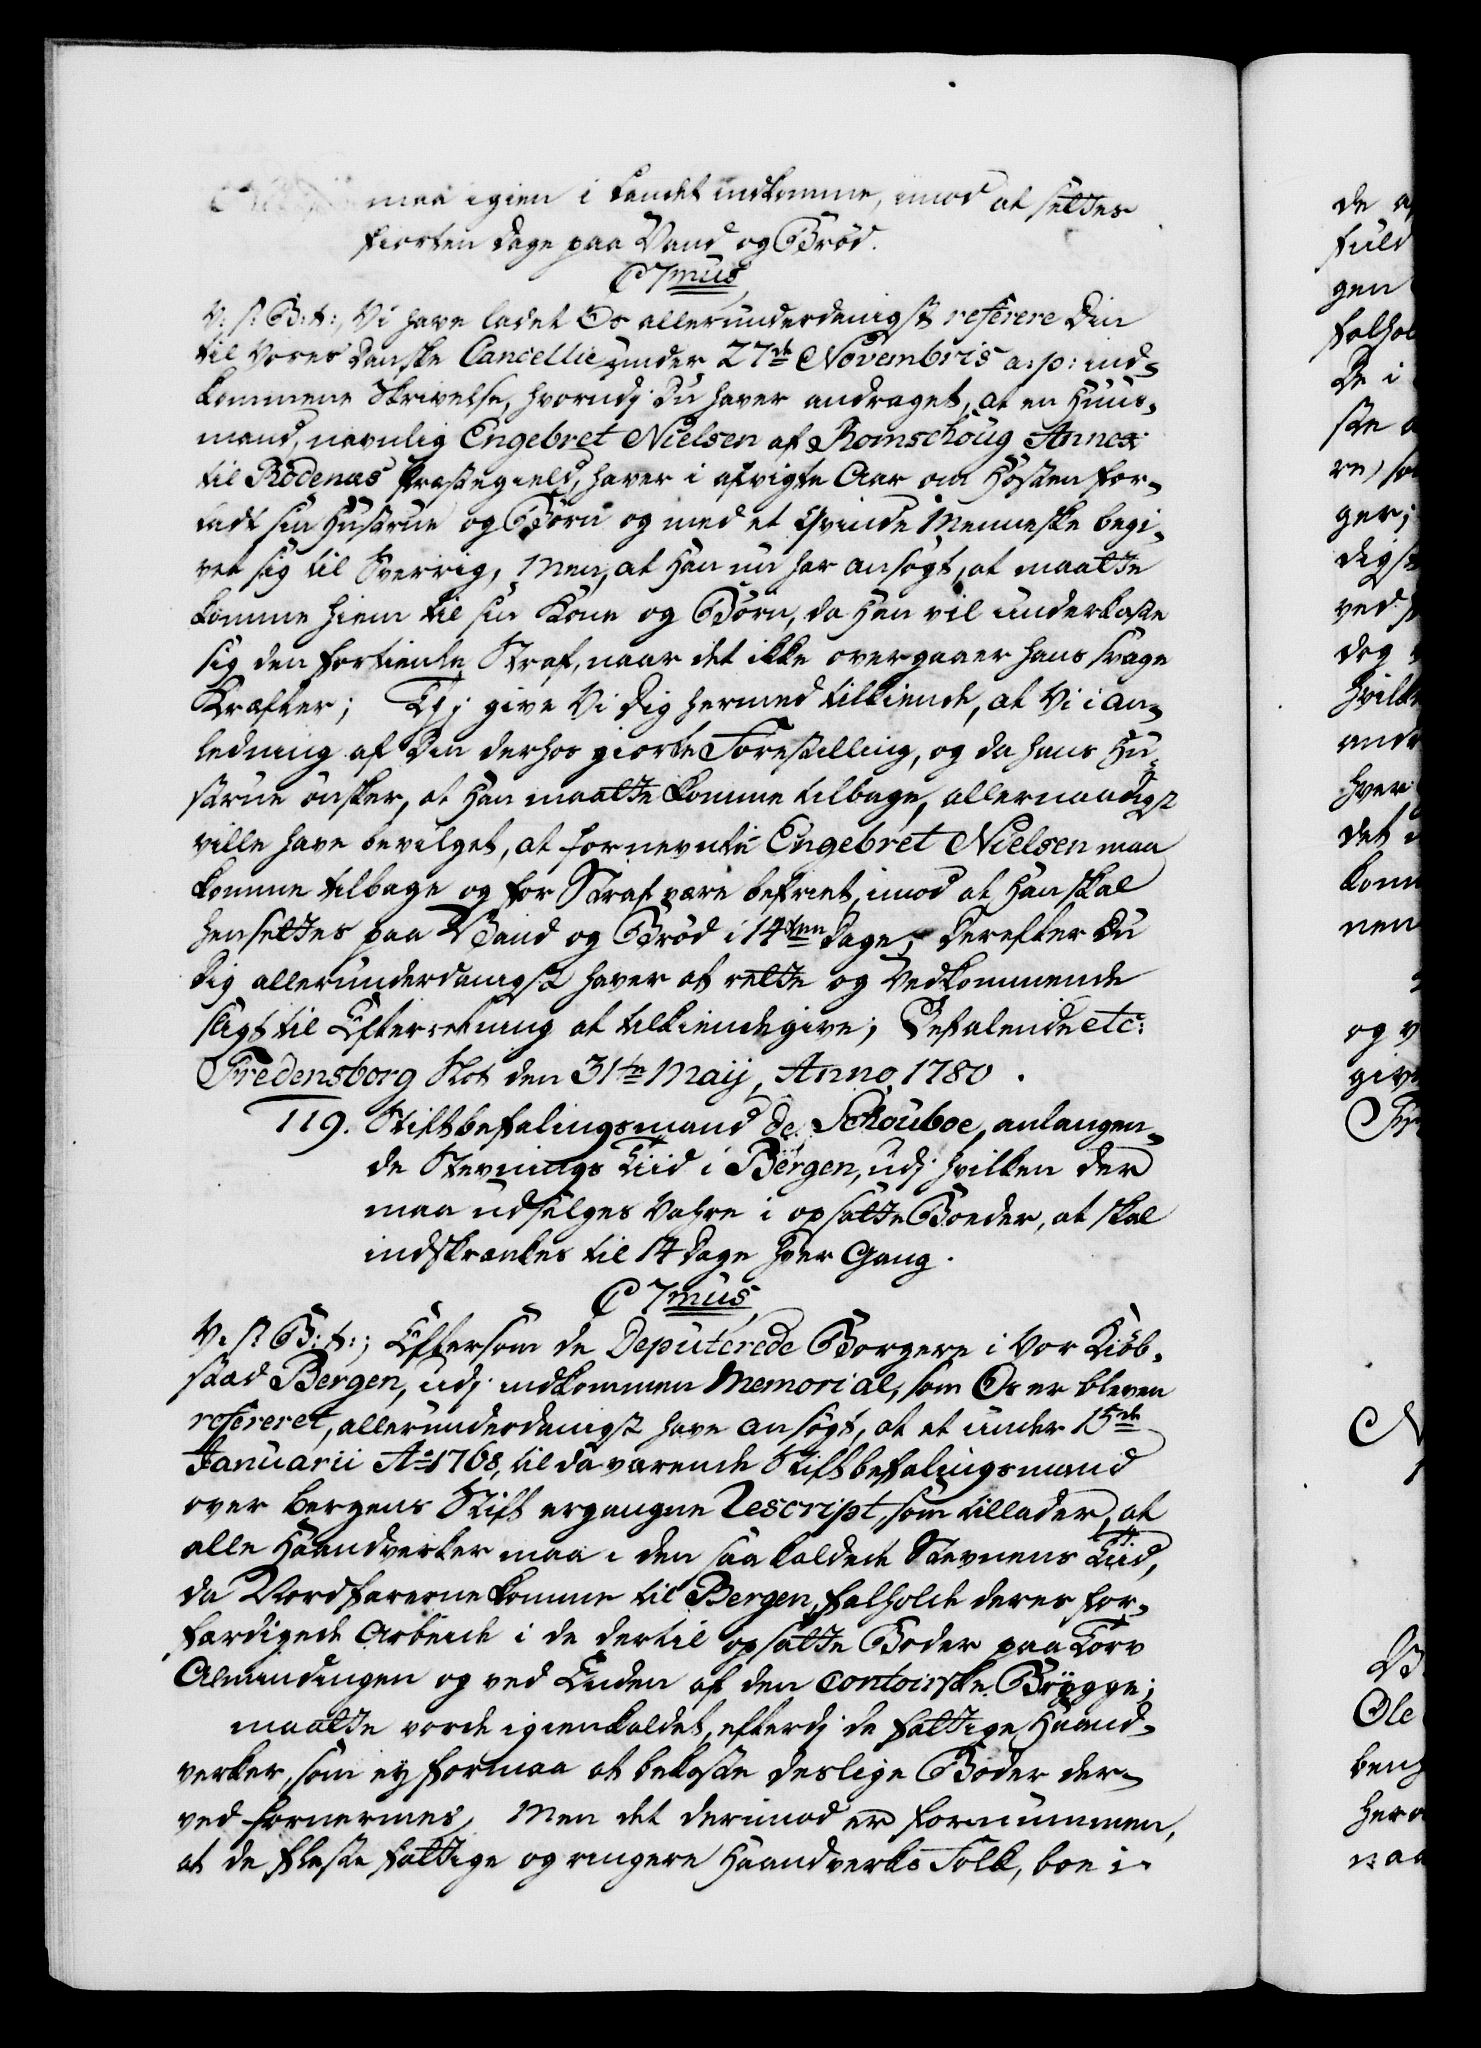 maa igien i Landet indkomme, imod at settes
fiorten Dage paa Vand og Brød.
C 7mus
V. S. G. t:, Vi have ladet Os allerunderdanigst referere Din
til Vores Danske Cancellie under 27de Novembris a: p: ind-
kommene Skrivelse, hvorudj Du haver andraget, at en Huus-
mand, navnlig Engebret Nielsen af Romschoug Annex
til Rödenæs Præstegield, haver i afvigte Aar om Høsten for-
ladt sin Hustrue og Børn og med et Qvinde Menneske begi-
vet sig til Sverrig, Men, at Han nu har ansøgt, at maatte
komme hiem til sin Kone og Børn, da Han vil underkaste
sig den fortiente Straf, naar det ikke overgaaer hans svage
Kræfter; Thj give Vi Dig hermed tilkiende, at Vi i An-
ledning af Din derhos giorte Forestilling, og da hans Hu-
strue ønsker, at Han maatte komme tilbage, allernaadigst
ville have bevilget, at fornevnte Engebret Nielsen maa
komme tilbage og for Straf være befriet, imod at Han skal
hensettes paa Vand og Brød i 14ten Dage; Derefter Du
Dig allerunderdanigst haver at rette og Vedkommende
sligt til Efterretning at tilkiendegive; Befalende etc:
Fredensborg Slot den 31te Maij, Anno 1780.
119. Stiftbefalingsmand de Schouboe, anlangen-
de Stevnings Tiid i Bergen, udj hvilken der
maa udsælges Vahre i opsatte Boeder, at skal
indskrænkes til 14 Dage hver Gang.
C 7mus
V. S. G. t:; Eftersom de Deputerede Borgere i Vor Kiøb-
stad Bergen, udj indkommen Memorial, som Os er bleven
refereret, allerunderdanigst have ansøgt, at et under 15de
Januarii Ao 1768, til daværende Stiftbefalingsmand
over Bergens Stift ergangne Rescript, som tillader, at
alle Haandverker maa i den saa kaldede Stevnens Tiid,
da Nordfarerne komme til Bergen, falholde deres for-
færdigede Arbeide i de dertil opsatte Boder paa Torv
Almindingen og ved Enden af den Contoirske Brygge;
maatte vorde igienkaldet, efterdj de fattige Haand-
verker, som ej formaa at bekoste deslige Boder der-
ved fornermes, Men det derimod er fornummen,
at de fleste fattige og ringere Haandverks Folk, boe i